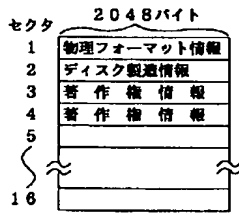 2048バイト
セクタ
1 物理フォーマット情報
2 ディスク製造情報
3 著作権情報
4 著作権情報
5
16